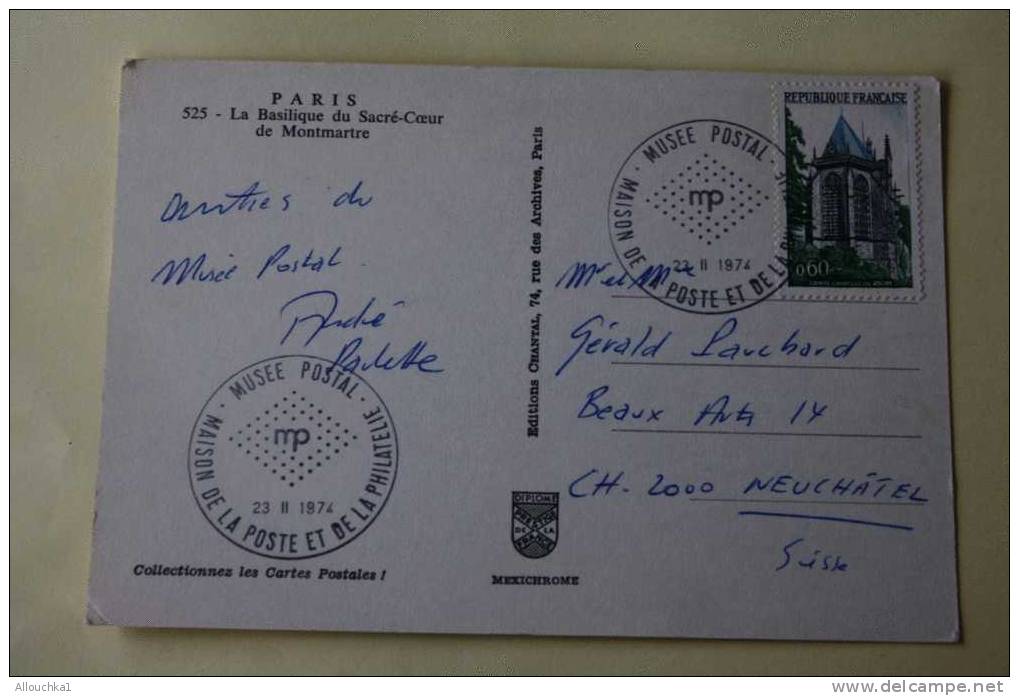 PARIS
525 - La Basilique du Sacré-Cœur
de Montmartre
du
Musée Postal.
André
Paulette
· MUSEE POSTAL ·
MAISON DE LA POSTE ET DE LA PHILATELIE
mp
23 II 1974
Collectionnez les Cartes Postales !
Editions CHANTAL, 74, rue des Archives, Paris
DIPLOME
PRESTIGE
DE LA
FRANCE
MEXICHROME
· MUSEE POSTAL ·
MAISON DE LA POSTE ET DE LA
mp
23 II 1974
REPUBLIQUE FRANÇAISE
0,60
Mr et Mme
Gérald
Beaux Arts 14
CH-2000 NEUCHÂTEL
Suisse
Allouchka1
www.delcampe.net